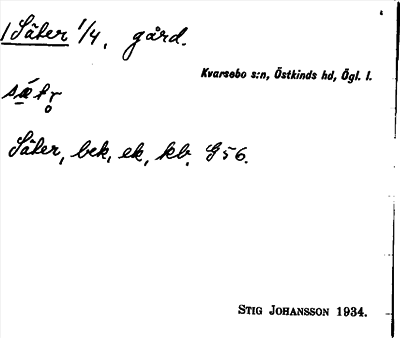 1 Säter 1/4, gård.
Kvarsebo s:n, Östkinds hd, Ögl. l.
Säter, bek, ek, kb. G 56.
STIG JOHANSSON 1934.